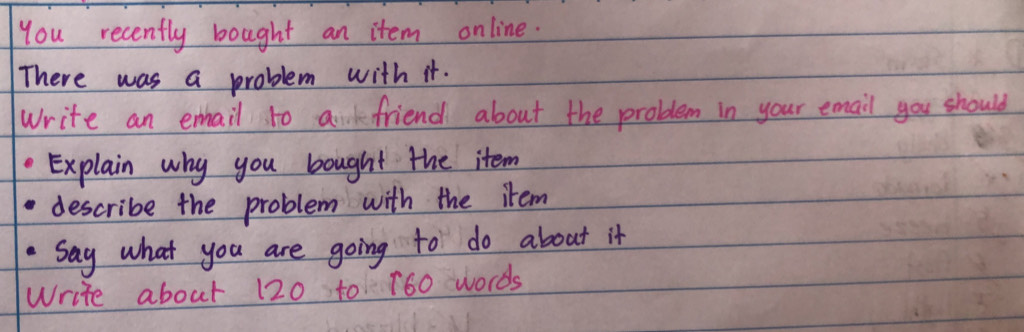 You recently bought an item online.
There was a problem with it.
Write an email to a friend about the problem in your email you should
• Explain why you bought the item
• describe the problem with the item
• Say what you are going to do about it
Write about 120 to 160 words